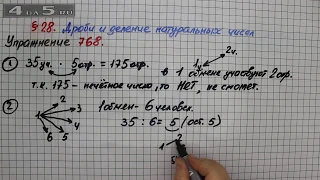 4DS.RU
§28. Дроби и деление натуральных чисел
Упражнение 768.
① 35уч. · 5отр. = 175отр.
1у 2у.
в 1 обмене участвуют 2отр.
т.к. 175 - нечётное число, то НЕТ, не сможет.
② 1обмен - 6 человек.
1 2 3 4 5 6
35 : 6 = 5 (ост. 5)
1 2
5